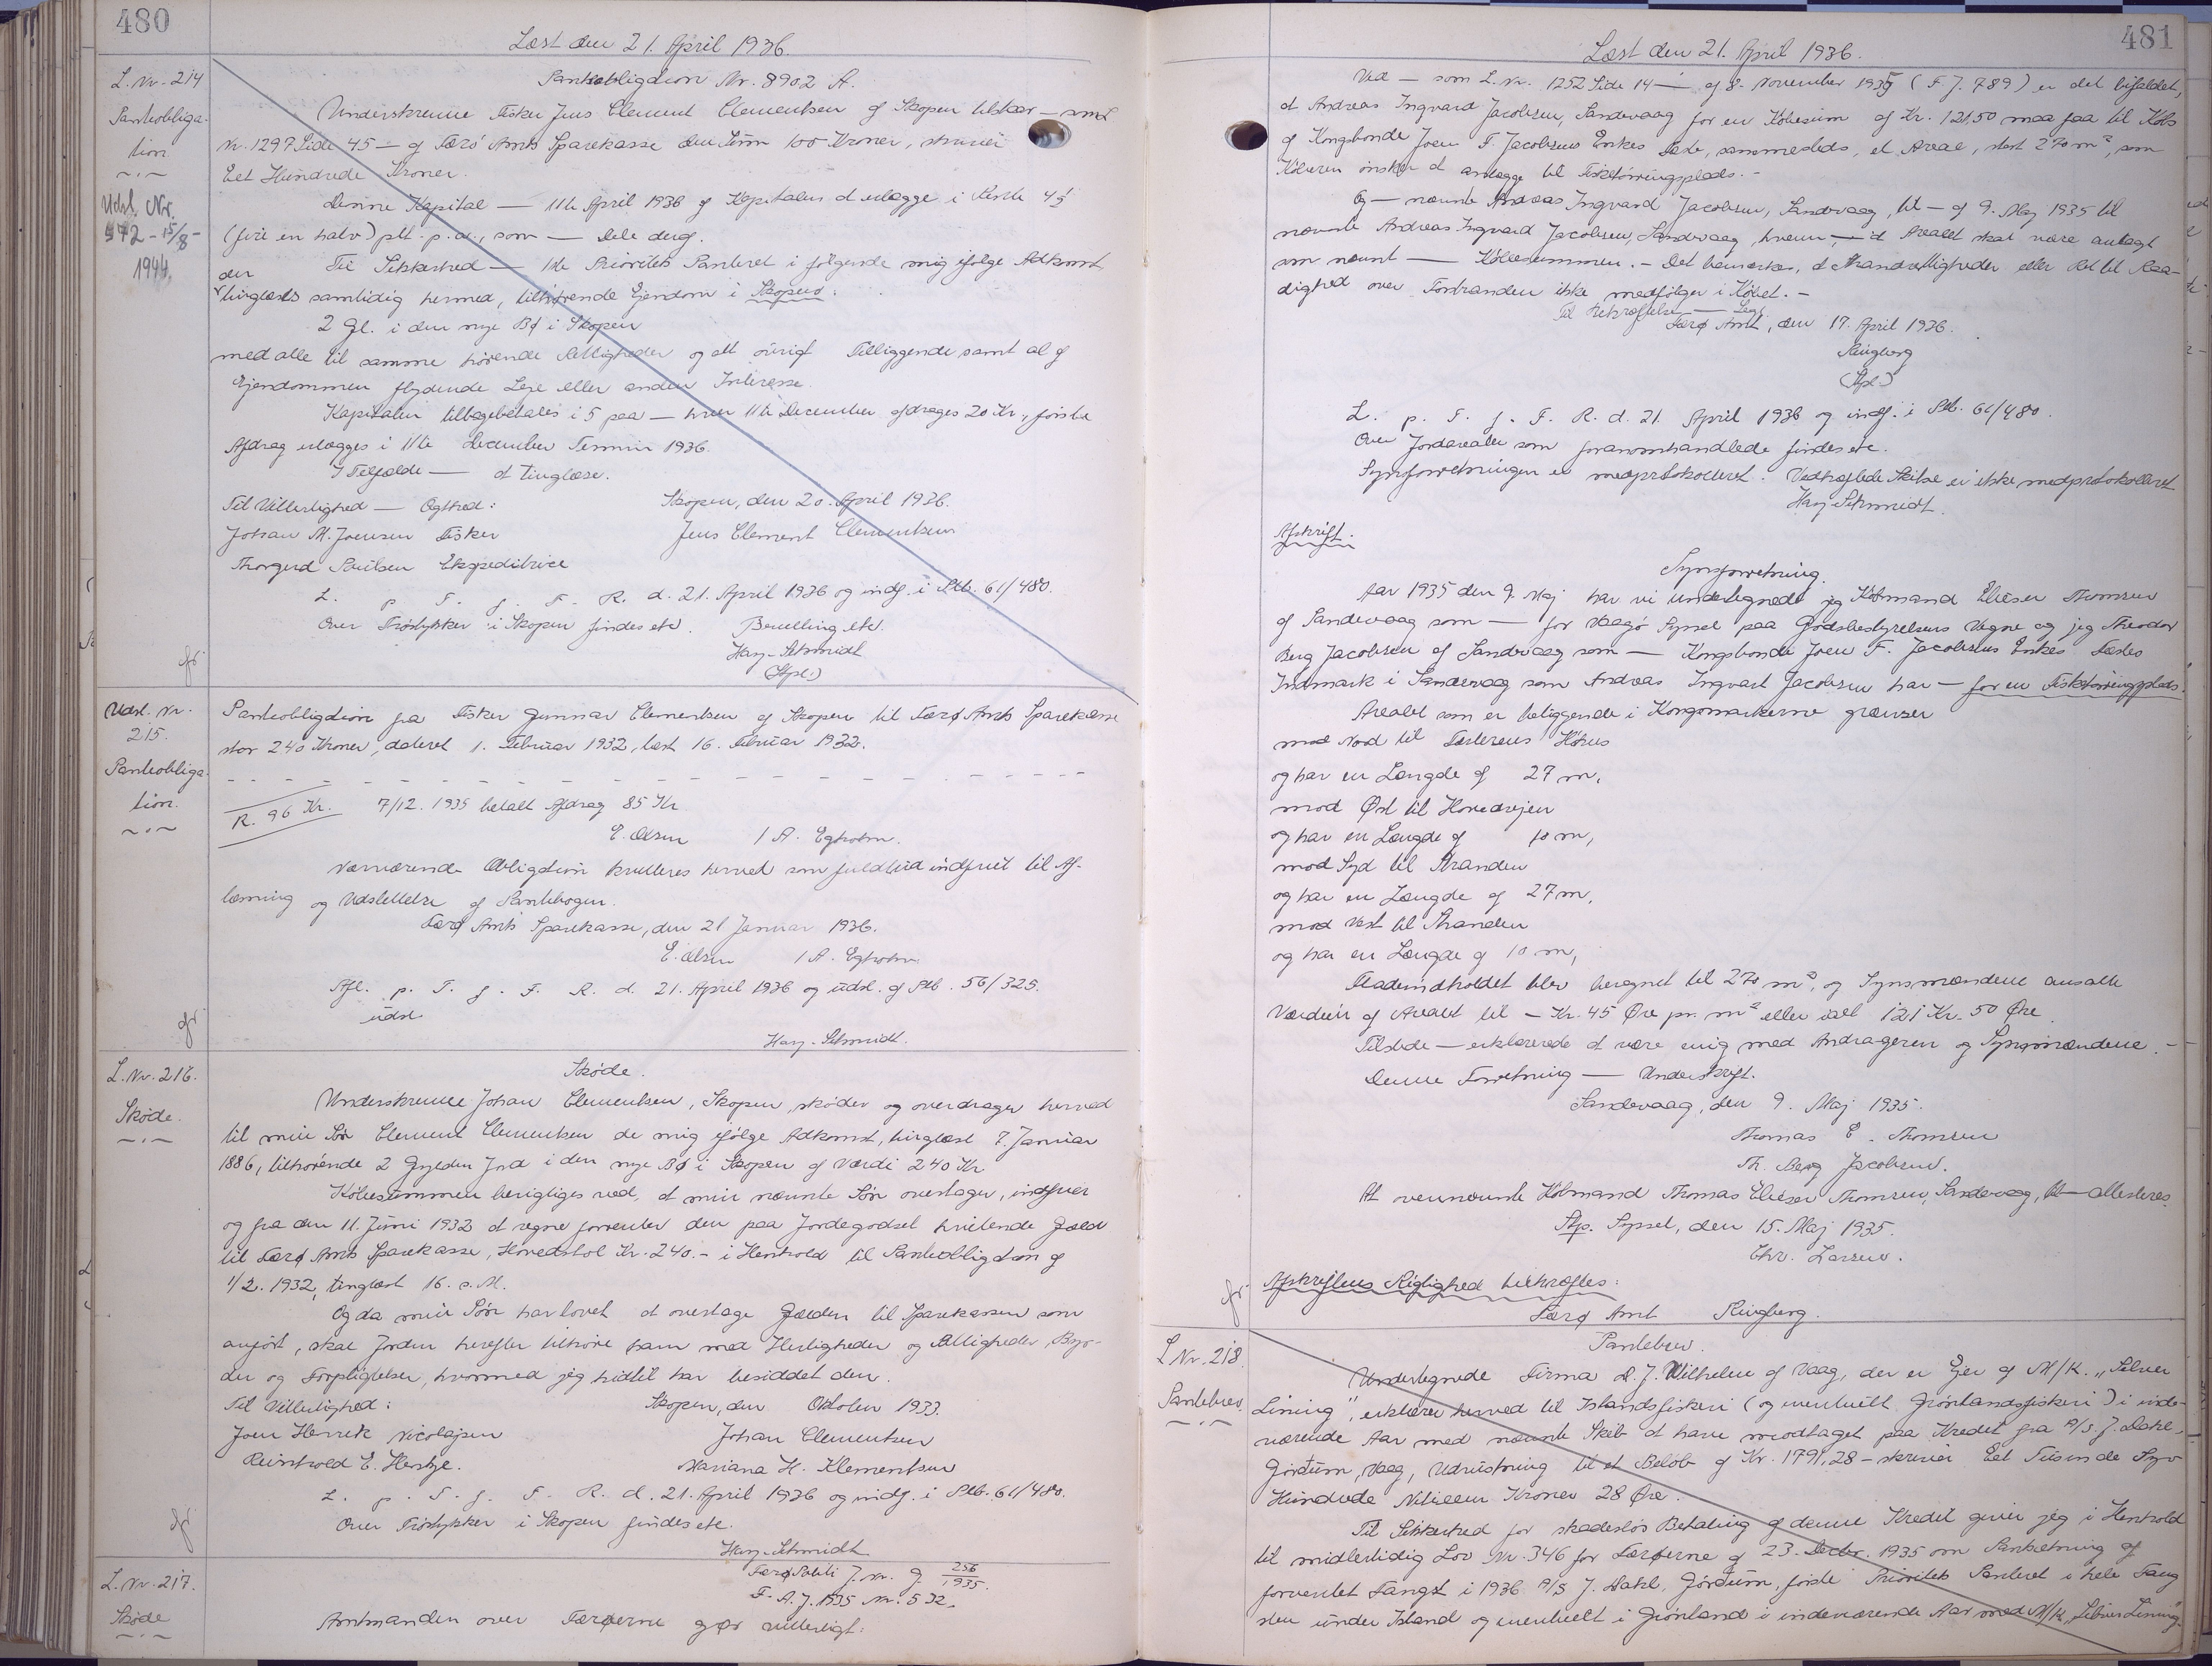 480
Læst den 21. April 1936.
L. Nr. 214
Pantobliga-
tion.
Udsl. Nr.
572 - 15/8 -
1944.
Pantobligation Nr. 8902 A.
Underskrevne Fisker Jens Clement Clementsen af Skopen tilstaar — som L
Nr. 1297 Side 45 — af Færø Amts Sparekasse den Sum 100 Kroner, skriver
Eet Hundrede Kroner.
Denne Kapital — 11te April 1936 af Kapitalen at erlægge i Rente 4½
(fire en halv) pCt. p. a., som — Dele deraf.
Til Sikkerhed — 1ste Prioritets Panteret i følgende mig ifølge Adkomst,
der
tinglæses samtidig hermed, tilhørende Ejendom i Skopen:
2 Gl. i den nye Bø i Skopen
med alle til samme hørende Rettigheder og alt øvrigt Tilliggende samt al af
Ejendommen flydende Leje eller anden Interesse.
Kapitalen tilbagebetales i 5 paa — hver 11te December afdrages 20 Kr., første
Afdrag erlægges i 11te December Termin 1936.
I Tilfælde — at tinglæse.
Til Vitterlighed — Ægthed:
Skopen, den 20. April 1936.
Johan M. Joensen Fisker
Jens Clement Clementsen
Thorgerd Poulsen Ekspeditrice
L. p. T. f. F. R. d. 21. April 1936 og indf. i Ptb. 61/480.
Over Trøstykker i Skopen findes etc. Bevilling etc.
Harj-Schmidt
(Stpl.)
Udsl. Nr.
215.
Pantobliga-
tion.
Pantobligation fra Fisker Gunnar Clementsen af Skopen til Færø Amts Sparekasse
stor 240 Kroner, dateret 1. Februar 1932, læst 16. Februar 1932.
R. 96 Kr. 7/12. 1935 betalt Afdrag 85 Kr.
E. Olsen / A. Egholm.
Nærværende Obligation kvitteres herved som fuldtud indfriet til Af-
læsning og Udslettelse af Pantebogen.
Færø Amts Sparekasse, den 21 Januar 1936.
E. Olsen / A. Egholm.
Afl. p. T. f. F. R. d. 21. April 1936 og udsl. af Ptb. 56/325.
udsl
Harj-Schmidt.
L. Nr. 216.
Skøde.
Skøde.
Underskrevne Johan Clementsen, Skopen, skøder og overdrager herved
til min Søn Clement Clementsen de mig ifølge Adkomst, tinglæst 7. Januar
1886, tilhørende 2 Gylden Jord i den nye Bø i Skopen af Værdi 240 Kr
Købesummen berigtiges ved, at min nævnte Søn overtager, indfrier
og fra den 11. Juni 1932 at regne forrenter den paa Jordegodset hvilende Gæld
til Færø Amts Sparekasse, Hovedstol Kr. 240.- i Henhold til Pantobligation af
1/2. 1932, tinglæst 16. s. M.
Og da min Søn har lovet at overtage Gælden til Sparekassen som
anført, skal Jorden herefter tilhøre ham med Herligheder og Rettigheder, Byr-
der og Forpligtelser, hvormed jeg hidtil har besiddet den.
Til Vitterlighed:
Skopen, den Oktober 1933.
Joen Henrik Nicolajsen
Johan Clementsen
Reinhold E. Hentze.
Mariana H. Klementsen
L. p. T. f. F. R. d. 21. April 1936 og indf. i Ptb. 61/480.
Over Trøstykker i Skopen findes etc.
Harj-Schmidt
L. Nr. 217.
Skøde
Færø Politi J. Nr. G 256/1935.
F. A. J. 1935 Nr. 532.
Amtmanden over Færøerne gør vitterligt:
481
Læst den 21. April 1936.
Ved — som L. Nr. 1252 Side 14 — af 8. November 1935 (F J. 789) er det bifaldet,
at Andreas Ingvard Jacobsen, Sandevaag for en Købesum af Kr. 121,50 maa faa til Købs
af Kongsbonde Joen F. Jacobsens Enkes Fæste, sammesteds, et Areal, stort 270 m², som
Køberen ønsker at anlægge til Fisketørringsplads. -
Og — nævnte Andreas Ingvard Jacobsen, Sandevaag, til — af 9. Maj 1935 til
nævnte Andreas Ingvard Jacobsen, Sandevaag, hvem, — at Arealet skal være anlagt
som nævnt — Købesummen. - Det bemærkes, at Strandrettigheder eller Ret til Raa-
dighed over Forstranden ikke medfølger i Købet. -
Til Bekræftelse — Segl.
Færø Amt, den 17. April 1936.
Ringberg
(Stpl.)
L. p. T. f. F. R. d. 21. April 1936 og indf. i Ptb. 61/480.
Over Jordarealer som foranomhandlede findes etc.
Synsforretningen er medprotokolleret. Vedhæftede Skitse er ikke medprotokolleret
Harj-Schmidt.
Afskrift.
Synsforretning.
Aar 1935 den 9. Maj har vi undertegnede jeg Købmand Elieser Thomsen
af Sandevaag som — for Vaagø Syssel paa Godsbestyrelsens Vegne og jeg Theodor
Berg Jacobsen af Sandevaag som — Kongsbonde Joen F. Jacobsens Enkes Fæstes
Indmark i Sandevaag som Andreas Ingvart Jacobsen har — for en Fisketørringsplads.
Arealet som er beliggende i Kongsmarkerne grænser
mod Nord til Fæsterens
og har en Længde af 27 m,
mod Øst til Hovedvejen
og har en Længde af 10 m,
mod Syd til Stranden
og har en Længde af 27 m,
mod Vest til Stranden
og har en Længde af 10 m,
Fladeindholdet blev beregnet til 270 m², og Synsmændene ansatte
Værdien af Arealet til — Kr. 45 Øre pr. m² eller ialt 121 Kr. 50 Øre.
Tilstede — erklærede at være enig med Andrageren og Synsmændene. -
Denne Forretning — Underskrift.
Sandevaag, den 9. Maj 1935.
Thomas E. Thomsen
Th. Berg Jacobsen.
At ovennævnte Købmand Thomas Elieser Thomsen, Sandevaag, et — attesteres.
Stp. Syssel, den 15. Maj 1935.
Chr. Larsen.
Afskriftens Rigtighed bekræftes:
Færø Amt Ringberg.
L Nr. 218.
Pantebrev.
Pantebrev.
Undertegnede Firma D. J. Wilhelm af Vaag, der er Ejer af M/K. „Silver
Lining", erklærer herved til Islandsfiskeri (og eventuelt Grønlandsfiskeri) i inde-
værende Aar med nævnte Skib at have modtaget paa Kredit fra A/S. J. Dahl,
Gørdum, Vaag, Udrustning til et Beløb af Kr. 1791,28 - skriver Eet Tusinde Syv
Hundrede Nitieen Kroner 28 Øre.
Til Sikkerhed for skadesløs Betaling af denne Kredit giver jeg i Henhold
til midlertidig Lov Nr. 346 for Færøerne af 23. Decbr. 1935 om Pantsætning af
forventet Fangst i 1936 A/S J. Dahl, Gørdum, første Prioritets Panteret i hele Fang
sten under Island og eventuelt i Grønland i indeværende Aar med M/K „Silver Lining"